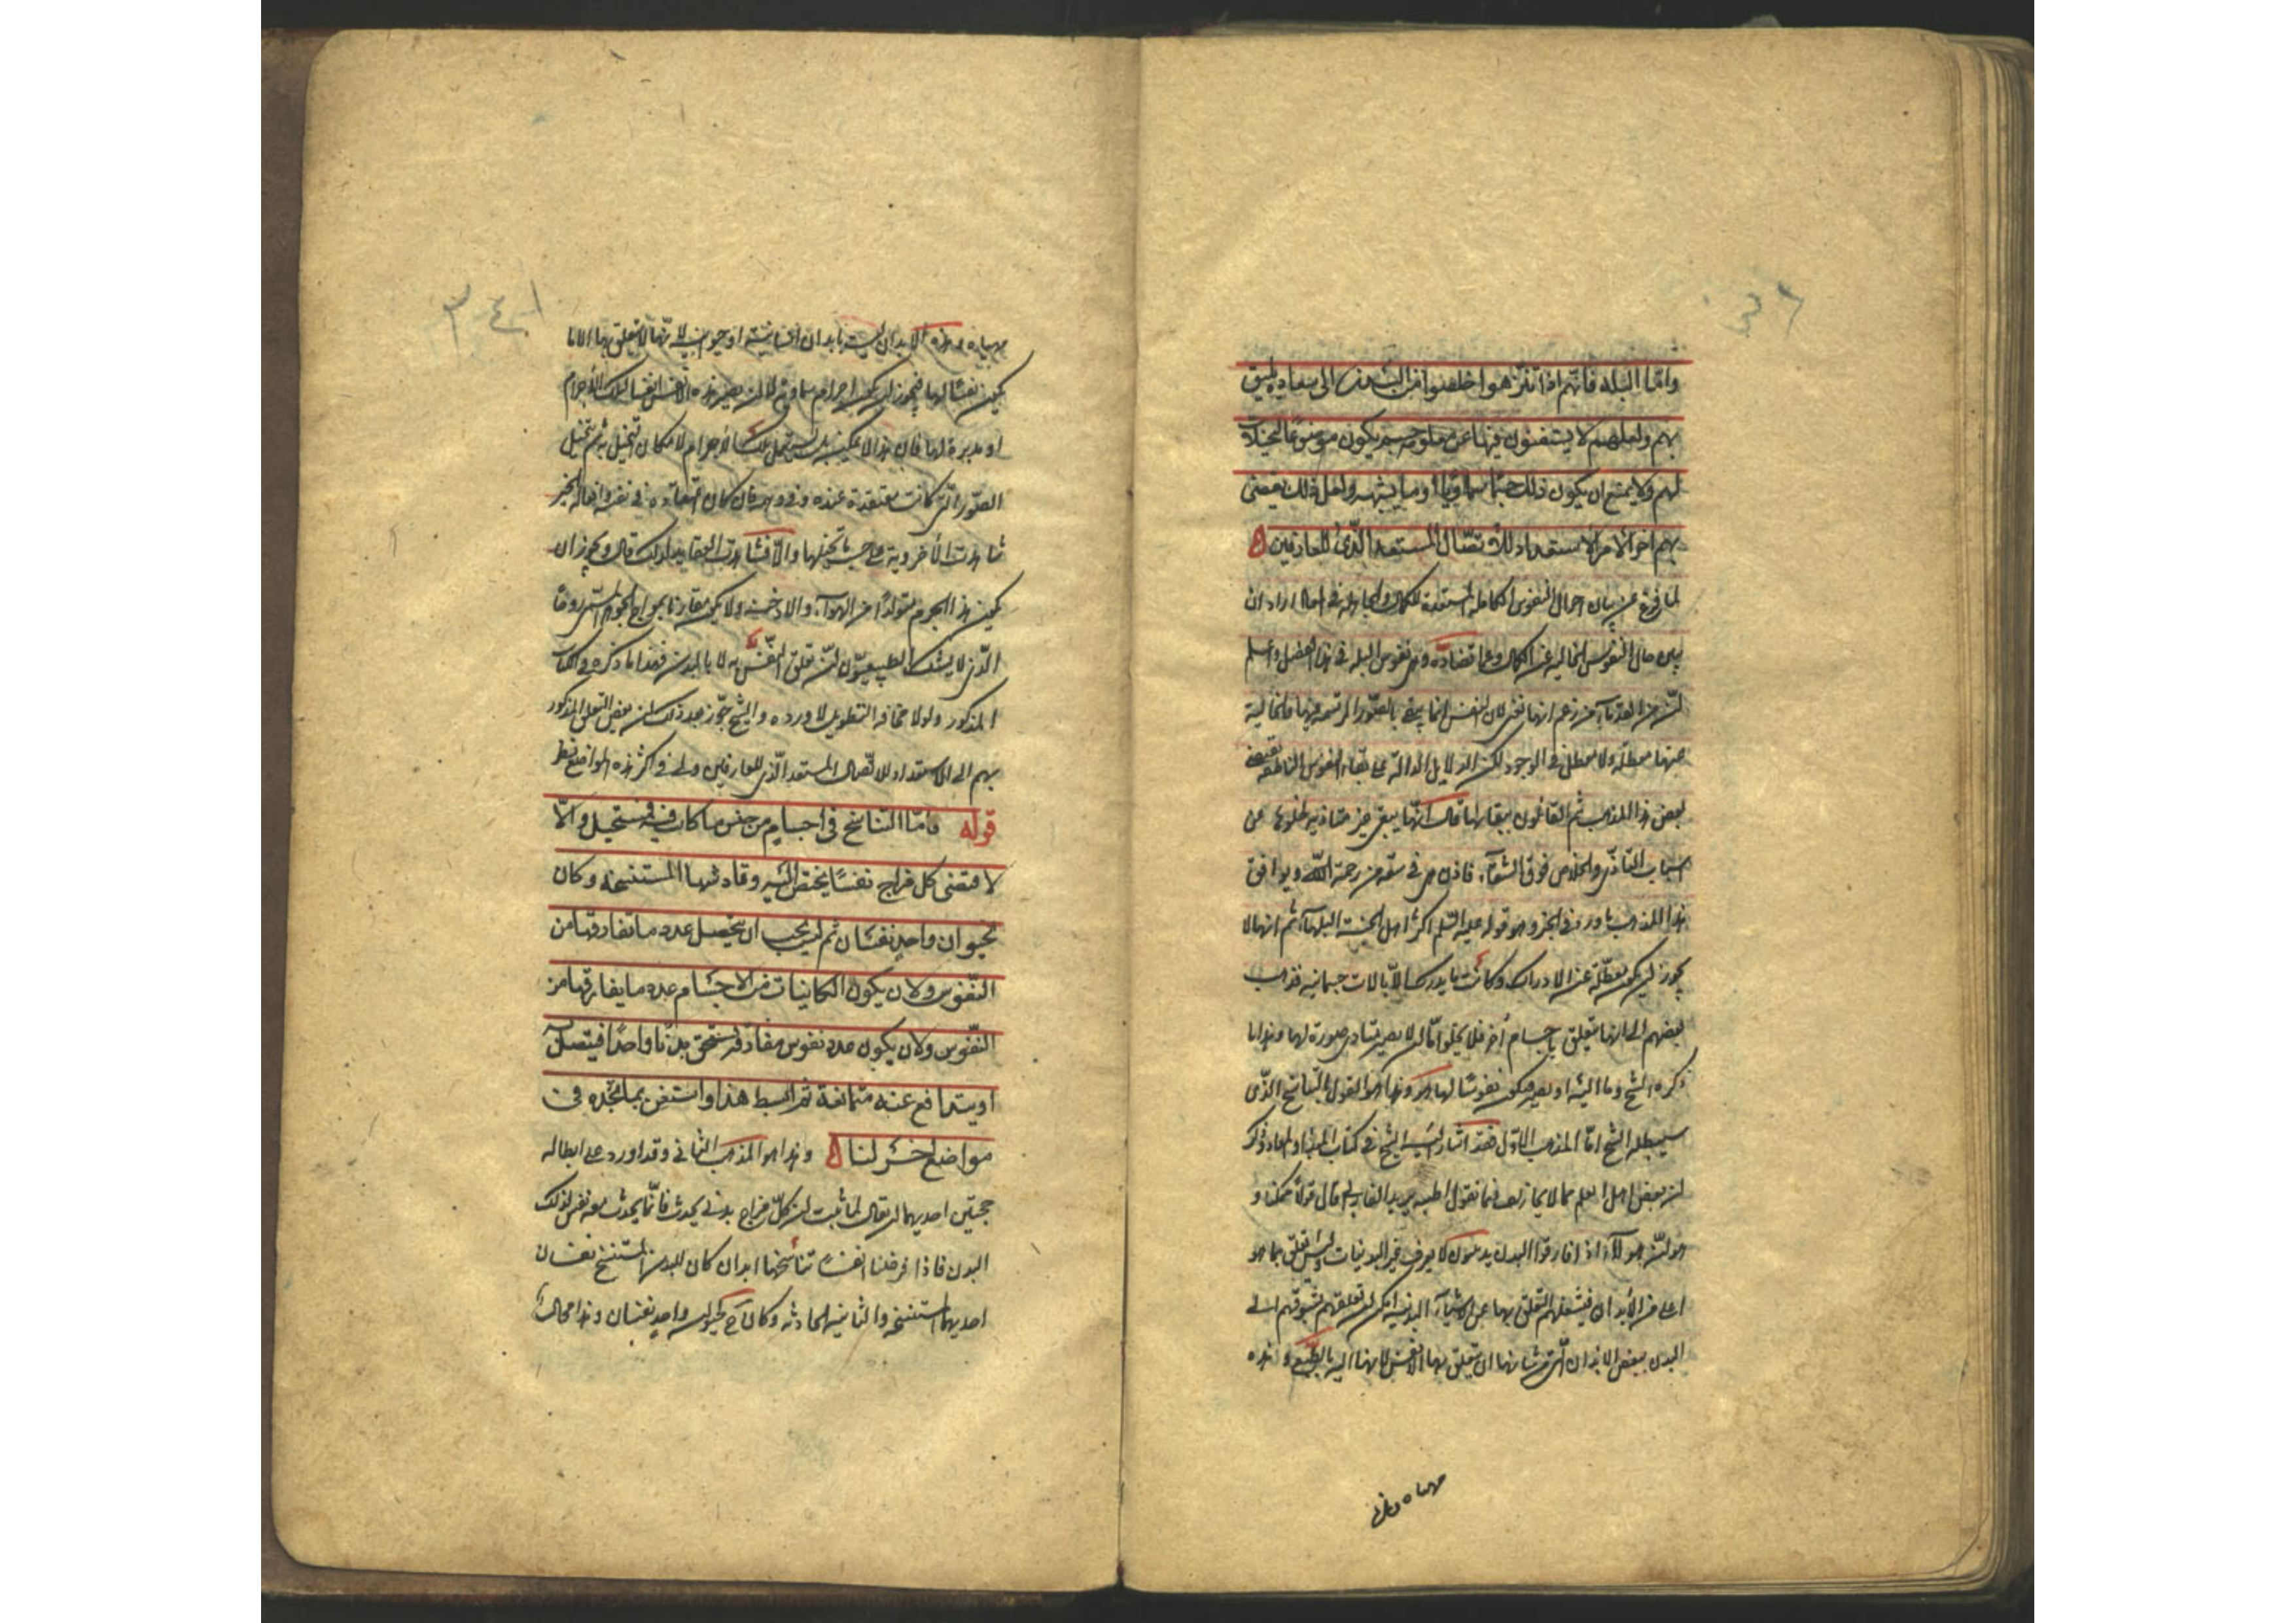 واما البله فانهم اذا تنزهوا خلصوا من البدن الى سعادة يليق
بهم ولعلهم لا يستغنون فيها عن معاونة جسم يكون موضوعا لتخيلات
لهم ولا يمتنع ان يكون ذلك جسما سماويا او ما يشبهه ولعل ذلك يفضى
بهم اخر الامر الاستعداد للاتصال المستعد الذى للعارفين
لما فرغ عن بيان احوال النفوس الكاملة المستعدة للكمال والجاهلة فى اراد ان
يبين حال النفوس الخالية عن الكمال وعما تضاده وهى نفوس البله فى هذا الفصل واعلم
ان من القدماء من زعم انها تفنى لان النفس انما يبقى بالصور المرتسمة فيها فالخالية
عنها معطلة ولا معطل فى الوجود لكن الدلايل الدالة على بقاء النفوس الناطقة تقتضى
نقض هذا المذهب ثم القائلون ببقائها قالوا انها يبقى غير متاذية لخلوها عن
اسباب التاذى والخلاص فوق الشقاء فاذن هى فى سعة من رحمة الله ويوافق
هذا المذهب ما ورد فى الخبر وهو قوله عليه السلم اكثر اهل الجنة البله ثم انها لا
يجوز ان يكون معطلة عن الادراك وكانت ما يدرك الا بالات جسمانية فذهب
بعضهم الى انها يتعلق باجسام اخر فلا يخلو اما ان لا يصير مبادى صورة لها وهذا ما
ذكره الشيخ وما اليه او يصير فيكون نفوسا لها وهذا هو القول بالتناسخ الذى
سيبطله الشيخ اما المذهب الاول فقد اشار اليه الشيخ فى كتاب المبدا والمعاد وذكر
ان بعض اهل العلم ممن لا يجازف فيما يقول اظنه يريد الفارابى قال قولا ممكنا و
هو ان هؤلاء اذا فارقوا البدن وهم بدنيون لا يعرفون غير البدنيات وليس لهم تعلق بما هو
اعلى من الابدان فيشغلهم التعلق بها عن الاشياء البدنية امكن ان تعلقهم تشوقهم الى
البدن ببعض الابدان التى من شانها ان يتعلق بها الانفس لانها طالبة بالطبع وهذه
مهياة وهذه الابدان ليست بابدان انسانية او حيوانية لانها لا يتعلق بها الا ما
يكون نفسا لها فيجوز ان يكون اجراما سماوية لا ان يصير هذه الانفس انفسا لتلك الاجرام
او مدبرة لها فان هذا لا يمكن بل يستعمل تلك الاجرام لامكان التخيل ثم تتخيل
الصور التى كانت معتقدة عنده وفى وهمه فان كان اعتقاده فى نفسه وافعاله الخير
شاهدت الاخروية على حسب ما تخيلها والا فشاهدت العقاب كذلك قال ويجوز ان
يكون هذا الجرم متولدا من الهواء والادخنة ولا يكون مقارنا لمزاج الجوهر المسمى روحا
الذى لا يشك الطبيعيون ان تعلق النفس به لا بالبدن فهذا ما ذكره فى الكتاب
المذكور ولولا مخافة التطويل لاوردته والشيخ جوز بعد ذلك ان يفضى التعلق المذكور
بهم الى الاستعداد للاتصال المستعد الذى للعارفين ولى فى اكثر هذه المواضع نظر
قوله فاما التناسخ فى اجسام من جنس ما كانت فيه فمستحيل والا
لاقتضى كل مزاج نفسا يختص اليه وقارنتها المستنسخة وكان
لحيوان واحد نفسان ثم ليس يجب ان يتصل عدد ما تفارقها من
النفوس ولا ان يكون الكائنات من الاجسام عدد ما يفارقها من
النفوس ولا ان يكون عدد نفوس مفارقة يستحق بدنا واحدا فيتصل به
او يتدافع عنه متمانعة ثم ابسط هذا واستغن بما تجده فى
مواضع اخر لنا وهذا هو المذهب الثانى وقد اورد على ابطاله
حجتين احديهما ان يقال لما ثبت ان كل مزاج بدنى يحدث فانما يحدث معه نفس لذلك
البدن فاذا فرضنا ان نفسا تناسختها ابدان كان للبدن المستنسخ نفسان
احديهما المستنسخة والثانية الحادثة وكان ح لحيوان واحد نفسان وهذا محال
مهياة وهذه